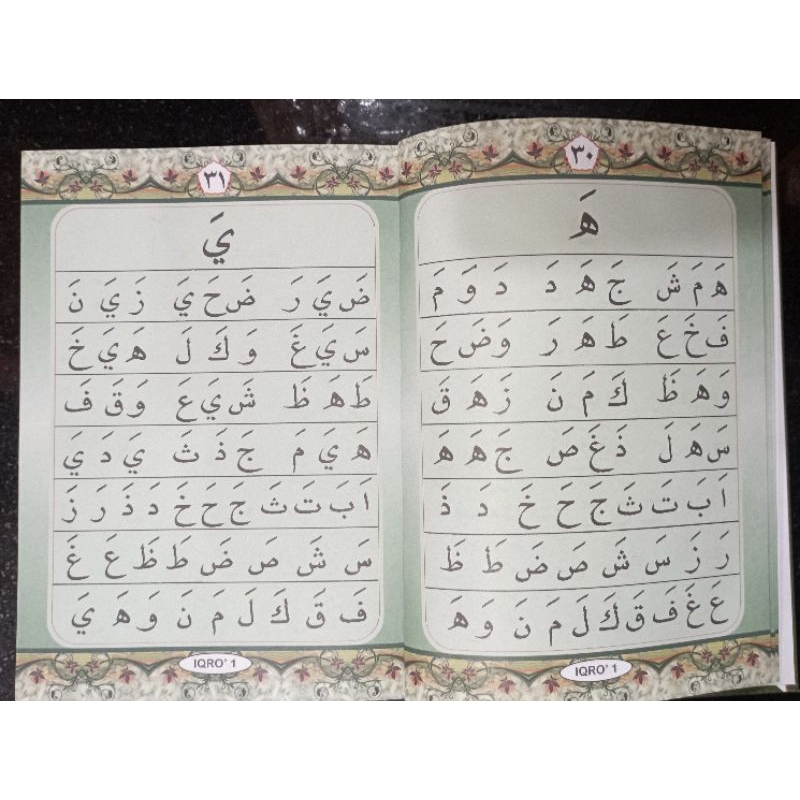 ٣٠
هَ
هَ مَ شَ جَ هَ دَ دَ وَ مَ
فَ خَ عَ طَ هَ رَ وَ ضَ حَ
وَ هَ ظَ كَ مَ نَ زَ هَ قَ
سَ هَ لَ ذَ غَ صَ جَ هَ هَ
اَ بَ تَ ثَ جَ حَ خَ دَ ذَ
رَ زَ سَ شَ صَ ضَ طَ ظَ
عَ غَ فَ قَ كَ لَ مَ نَ وَ هَ
IQRO' 1
٣١
يَ
ضَ يَ رَ ضَ حَ يَ زَ يَ نَ
سَ يَ غَ وَ كَ لَ هَ يَ خَ
طَ هَ ظَ شَ يَ عَ وَ قَ فَ
هَ يَ مَ جَ ذَ ثَ يَ دَ يَ
اَ بَ تَ ثَ جَ حَ خَ دَ ذَ رَ زَ
سَ شَ صَ ضَ طَ ظَ عَ غَ
فَ قَ كَ لَ مَ نَ وَ هَ يَ
IQRO' 1